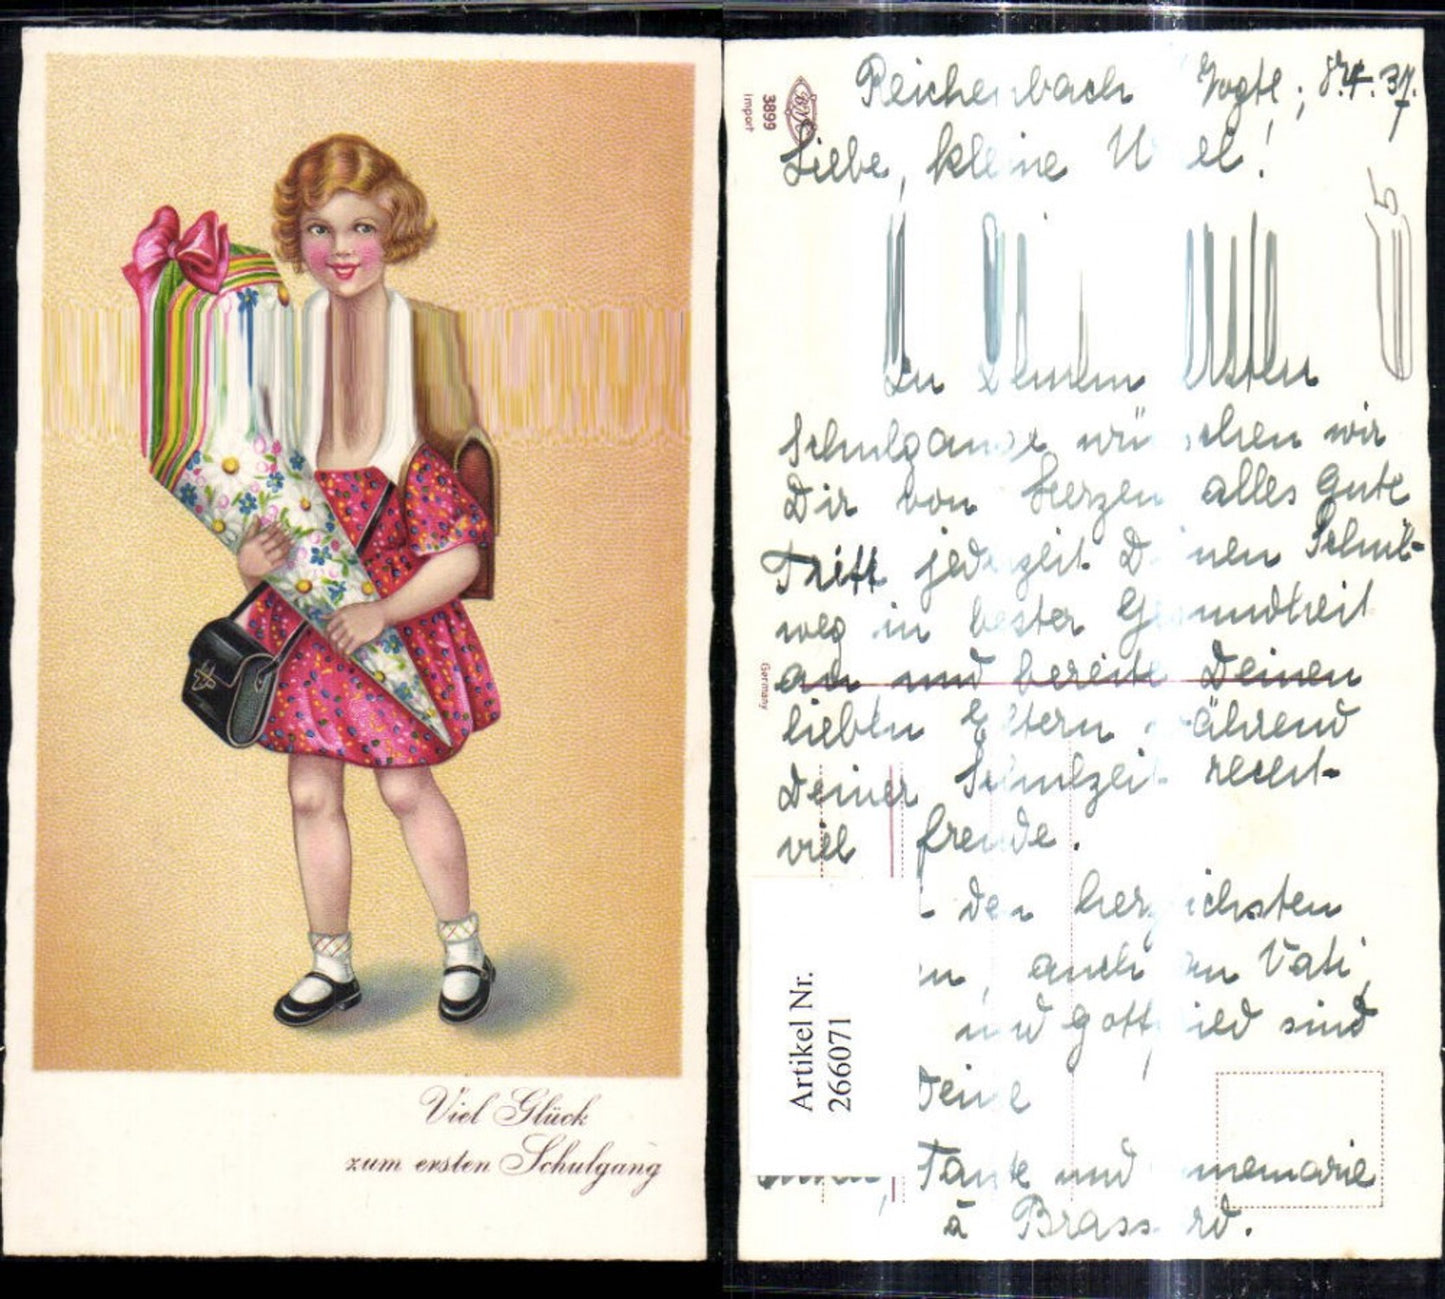 Viel Glück
zum ersten Schulgang
3899
Import
Germany
Reichenbach Vogtl; 8.4.37.
Liebe, kleine U el!
Zu Deinem ersten
Schulgange wünschen wir
Dir von Herzen alles Gute
Tritt jederzeit Deinen Schul-
weg in bester Gesundheit
an und bereite Deinen
lieben Eltern während
Deiner Schulzeit recht
viel Freude.
den herzlichsten
en, auch an Vati,
und Gottfried sind
Deine
Tante und nemarie
Brass rd.
Artikel Nr.
266071
5